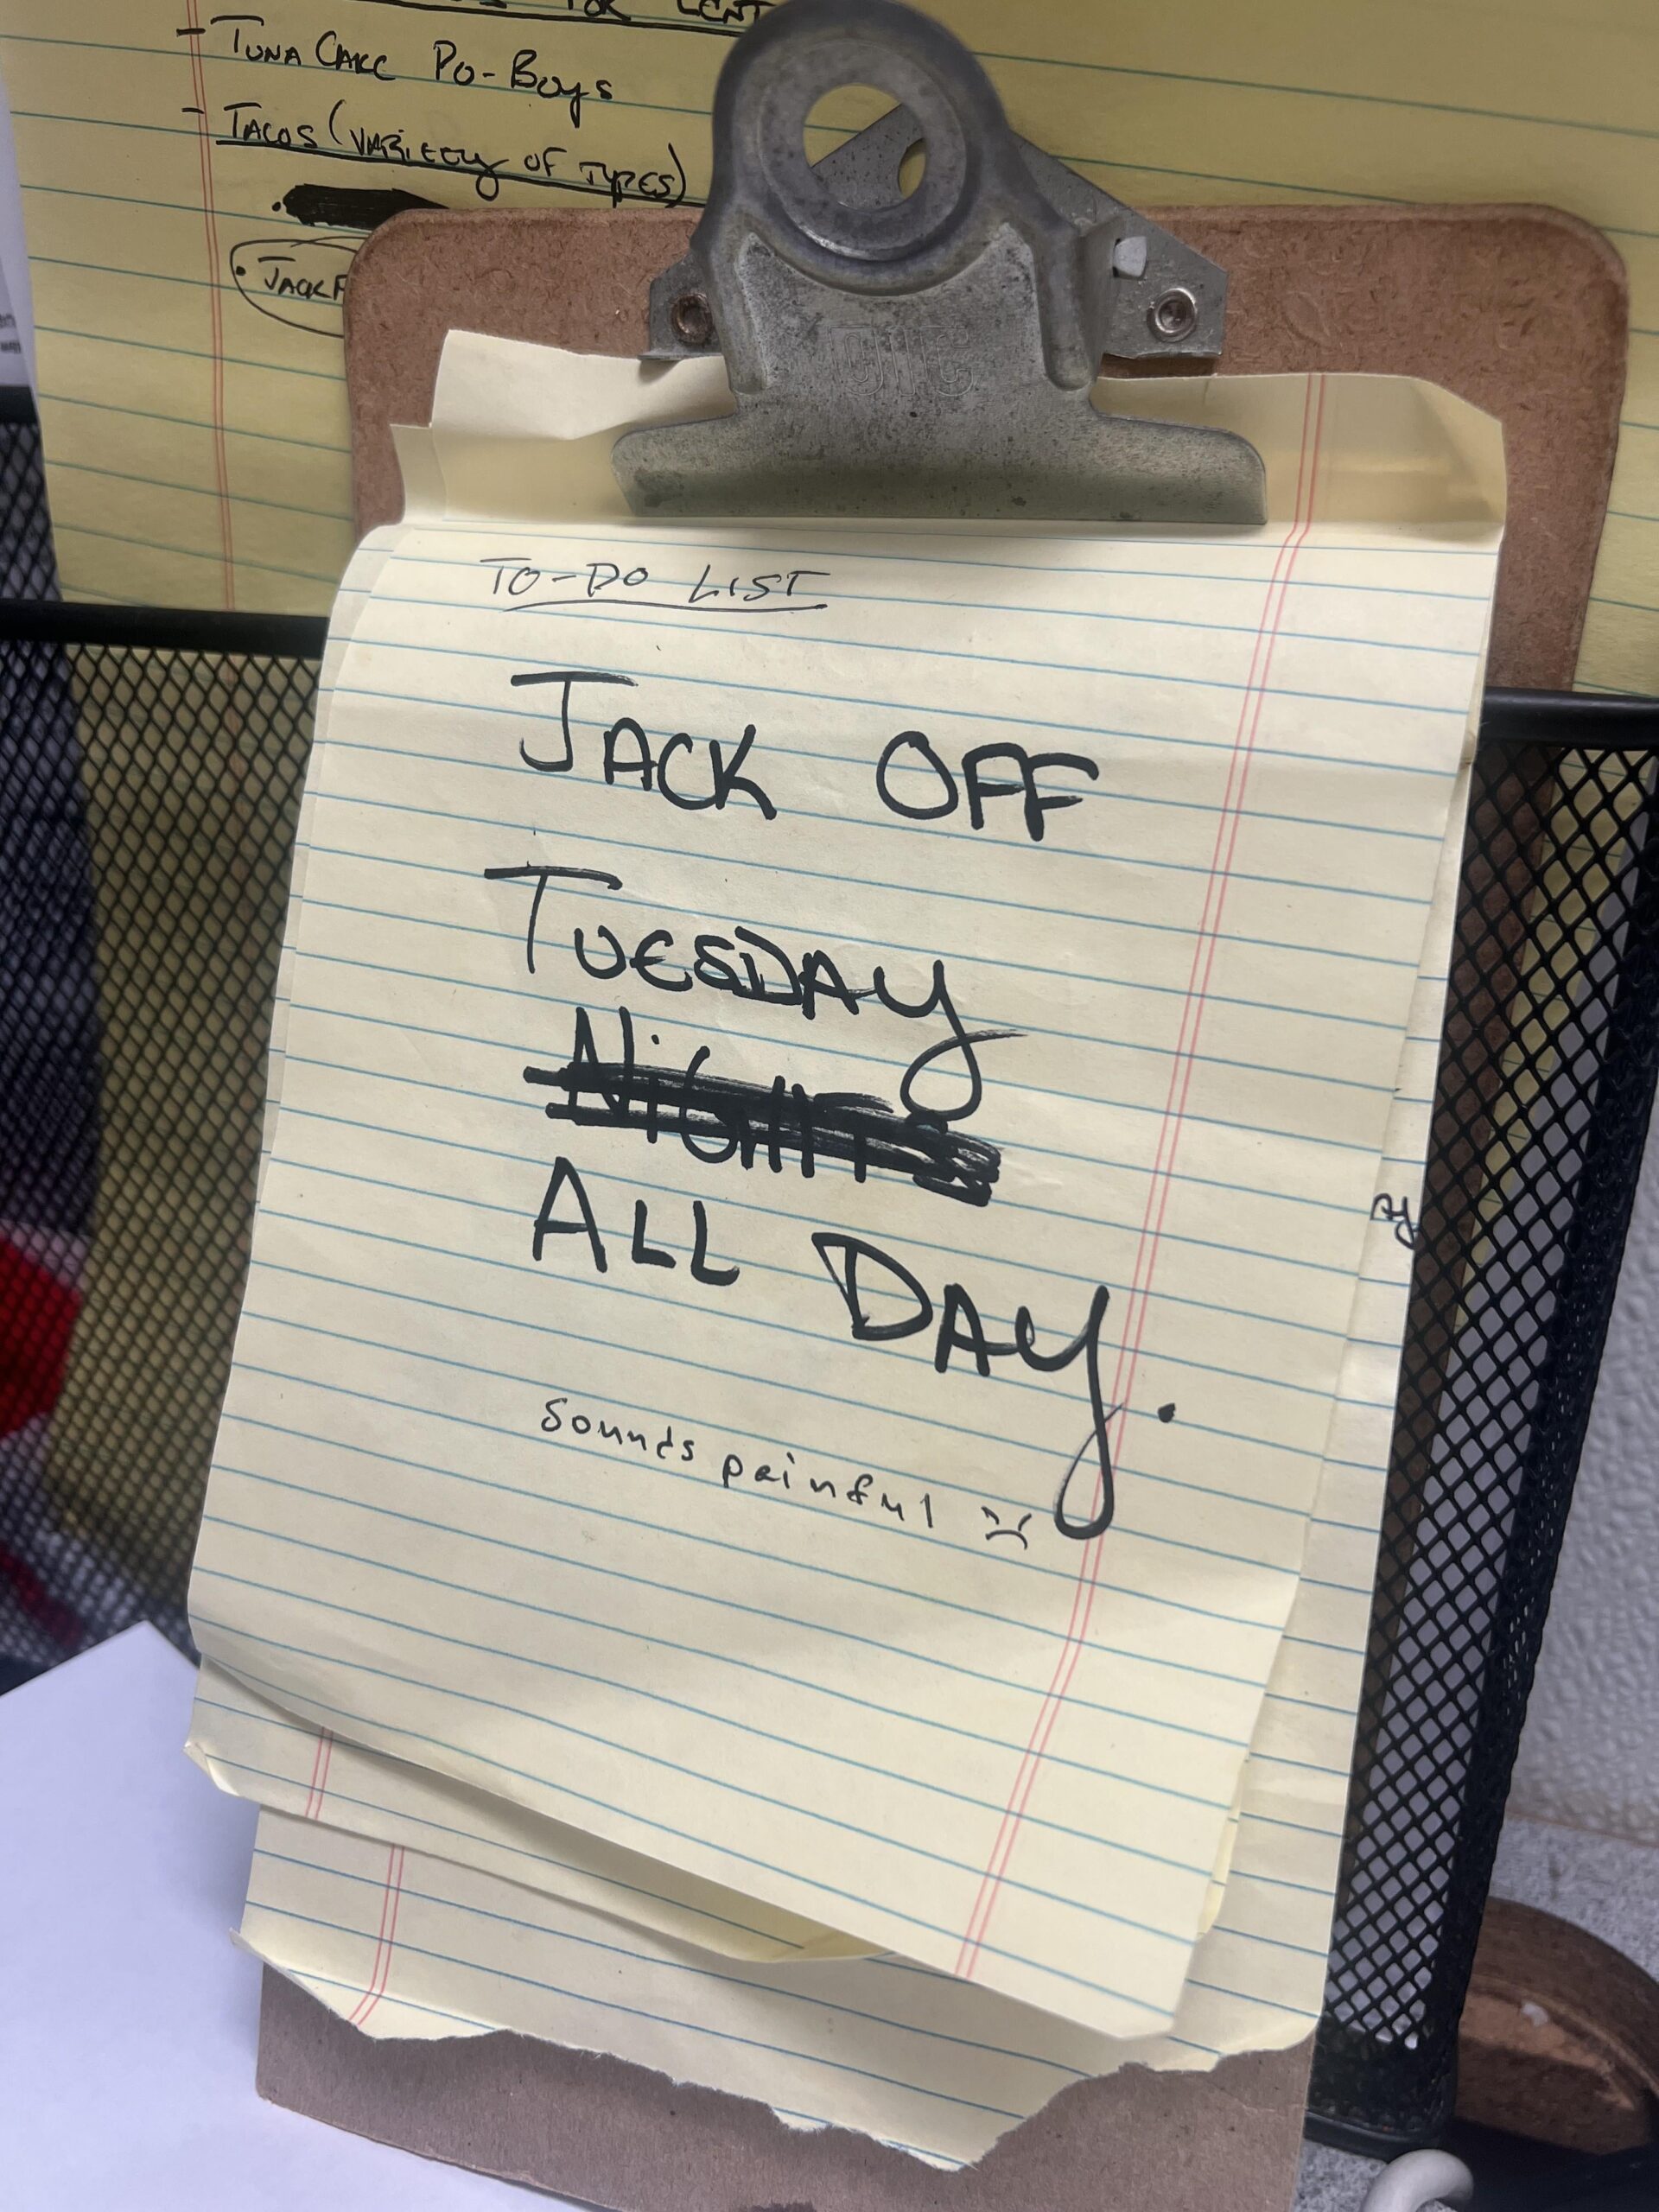 FOR LENT
- TUNA CAKE PO-BOYS
- TACOS (VARIETY OF TYPES)
TO-DO LIST
JACK OFF
TUESDAY
NIGHT
ALL DAY.
Sounds painful